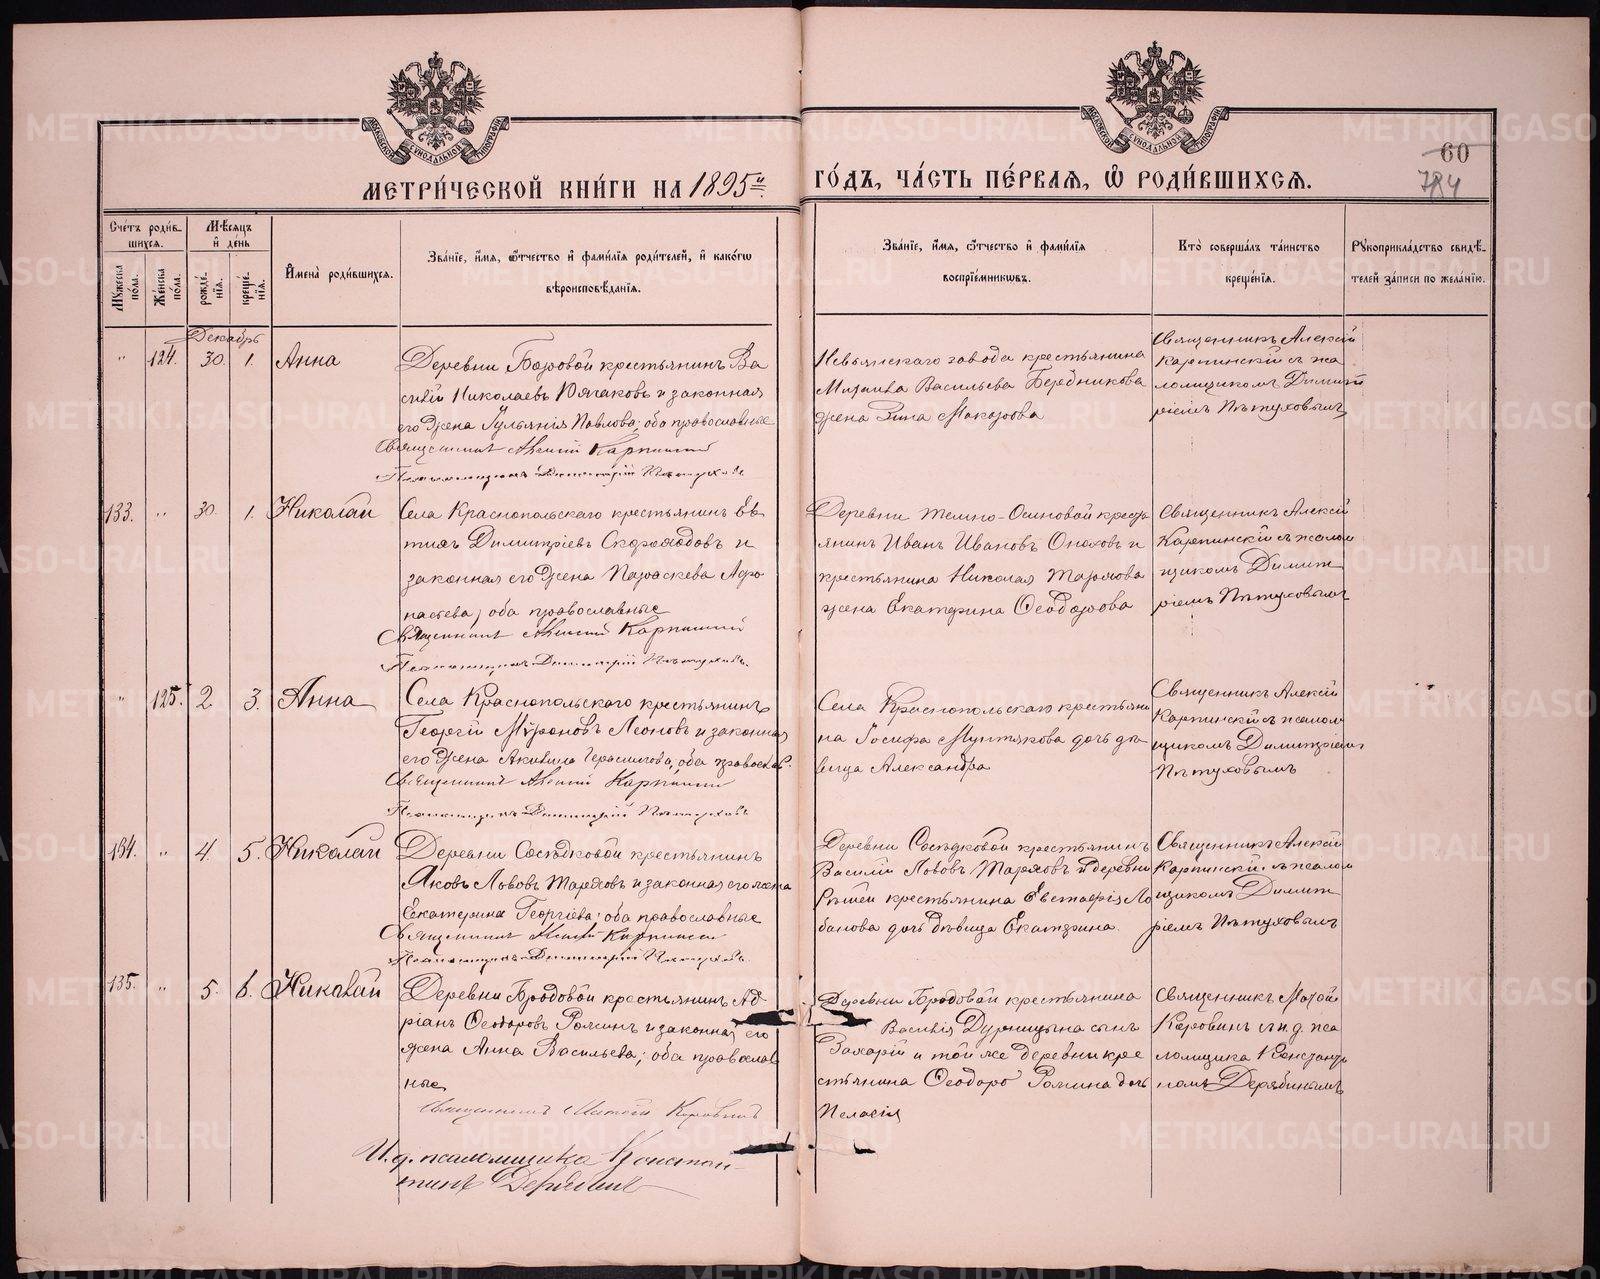 МЕТРИ́ЧЕСКОЙ КНИ́ГИ НА 1895й
ГО́ДЪ, ЧА́СТЬ ПЕ́РВАѦ, Ѽ РОДИ́ВШИХСѦ.
МОСКОВСКОЙ СѴНОДАЛЬНОЙ ТИПОГРАФІИ
МОСКОВСКОЙ СѴНОДАЛЬНОЙ ТИПОГРАФІИ
60
784
Сче́тъ роди́вшихсѧ.
Мꙋ́жеска по́ла.
Же́нска по́ла.
Мѣ́сѧцъ и҆ де́нь
рожде́нїѧ.
креще́нїѧ.
И҆мена̀ роди́вшихсѧ.
Зва́нїе, и҆́мѧ, ѻ҆́тчество и҆ фами́лїѧ роди́телей, и҆ како́гѡ
вѣроисповѣ́данїѧ.
Зва́нїе, и҆́мѧ, ѻ҆́тчество и҆ фами́лїѧ
воспрїе́мникѡвъ.
Кто̀ соверша́лъ та́инство
креще́нїѧ.
Рꙋкоприкла́дство свидѣ́телей за́писи по жела́нїю.
Декабрь
" 124. 30. 1. Анна
Деревни Боровой крестьянинъ Ва
силій Николаевъ и законная
его жена Іульянія Павлова; оба православные
Священникъ Алексій Карпинскій
Псаломщикъ Димитрій Пѣтуховъ
Невьянскаго завода крестьянина
Васильева Бердникова
жена Макарова
Священникъ Алексій
Карпинскій съ псаломщикомъ Димитріемъ Пѣтуховымъ
133. " 30. 1. Николай
Села Краснопольскаго крестьянинъ
Димитріевъ и
законная его жена Параскева Афо
насьева; оба православные
Священникъ Алексій Карпинскій
Псаломщикъ Димитрій Пѣтуховъ
Деревни Темно-Осиновой крестьянинъ Иванъ Ивановъ и
крестьянина Николая
жена Екатерина Ѳеодорова
Священникъ Алексій
Карпинскій съ псаломщикомъ Димитріемъ Пѣтуховымъ
" 125. 2. 3. Анна
Села Краснопольскаго крестьянинъ
Георгій Мѵроновъ Леоновъ и законная
его жена Акилина Герасимова, оба православ.
Священникъ Алексій Карпинскій
Псаломщикъ Димитрій Пѣтуховъ
Села Краснопольскаго крестьяни
на Іосифа дочь дѣ
вица Александра
Священникъ Алексій
Карпинскій съ псаломщикомъ Димитріемъ
Пѣтуховымъ
134. " 4. 5. Николай
Деревни Сосѣдковой крестьянинъ
Яковъ Львовъ и законная его жена
Екатерина Георгіева; оба православные
Священникъ Алексій Карпинскій
Псаломщикъ Димитрій Пѣтуховъ
Деревни Сосѣдковой крестьянинъ
Василій Львовъ и деревни
Рѣшей крестьянина Евстафія Ло
банова дочь дѣвица Екатерина.
Священникъ Алексій
Карпинскій съ псаломщикомъ Димит
ріемъ Пѣтуховымъ
135. " 5. 6. Николай
Деревни Бродовой крестьянинъ Ад
ріанъ Ѳеодоровъ и законная его
жена Анна Васильева; оба православ
ные
Священникъ Матѳій Коровинъ
И.д. псаломщика Констан
тинъ Дерябинъ
Деревни Бродовой крестьянина
Василія Дурницына сынъ
Захарій и той же деревни кре
стьянина Ѳеодора дочь
Пелагія
Священникъ Матѳій
Коровинъ съ и.д. пса
ломщика Константи
номъ Дерябинымъ
METRIKI.GASO-URAL.RU